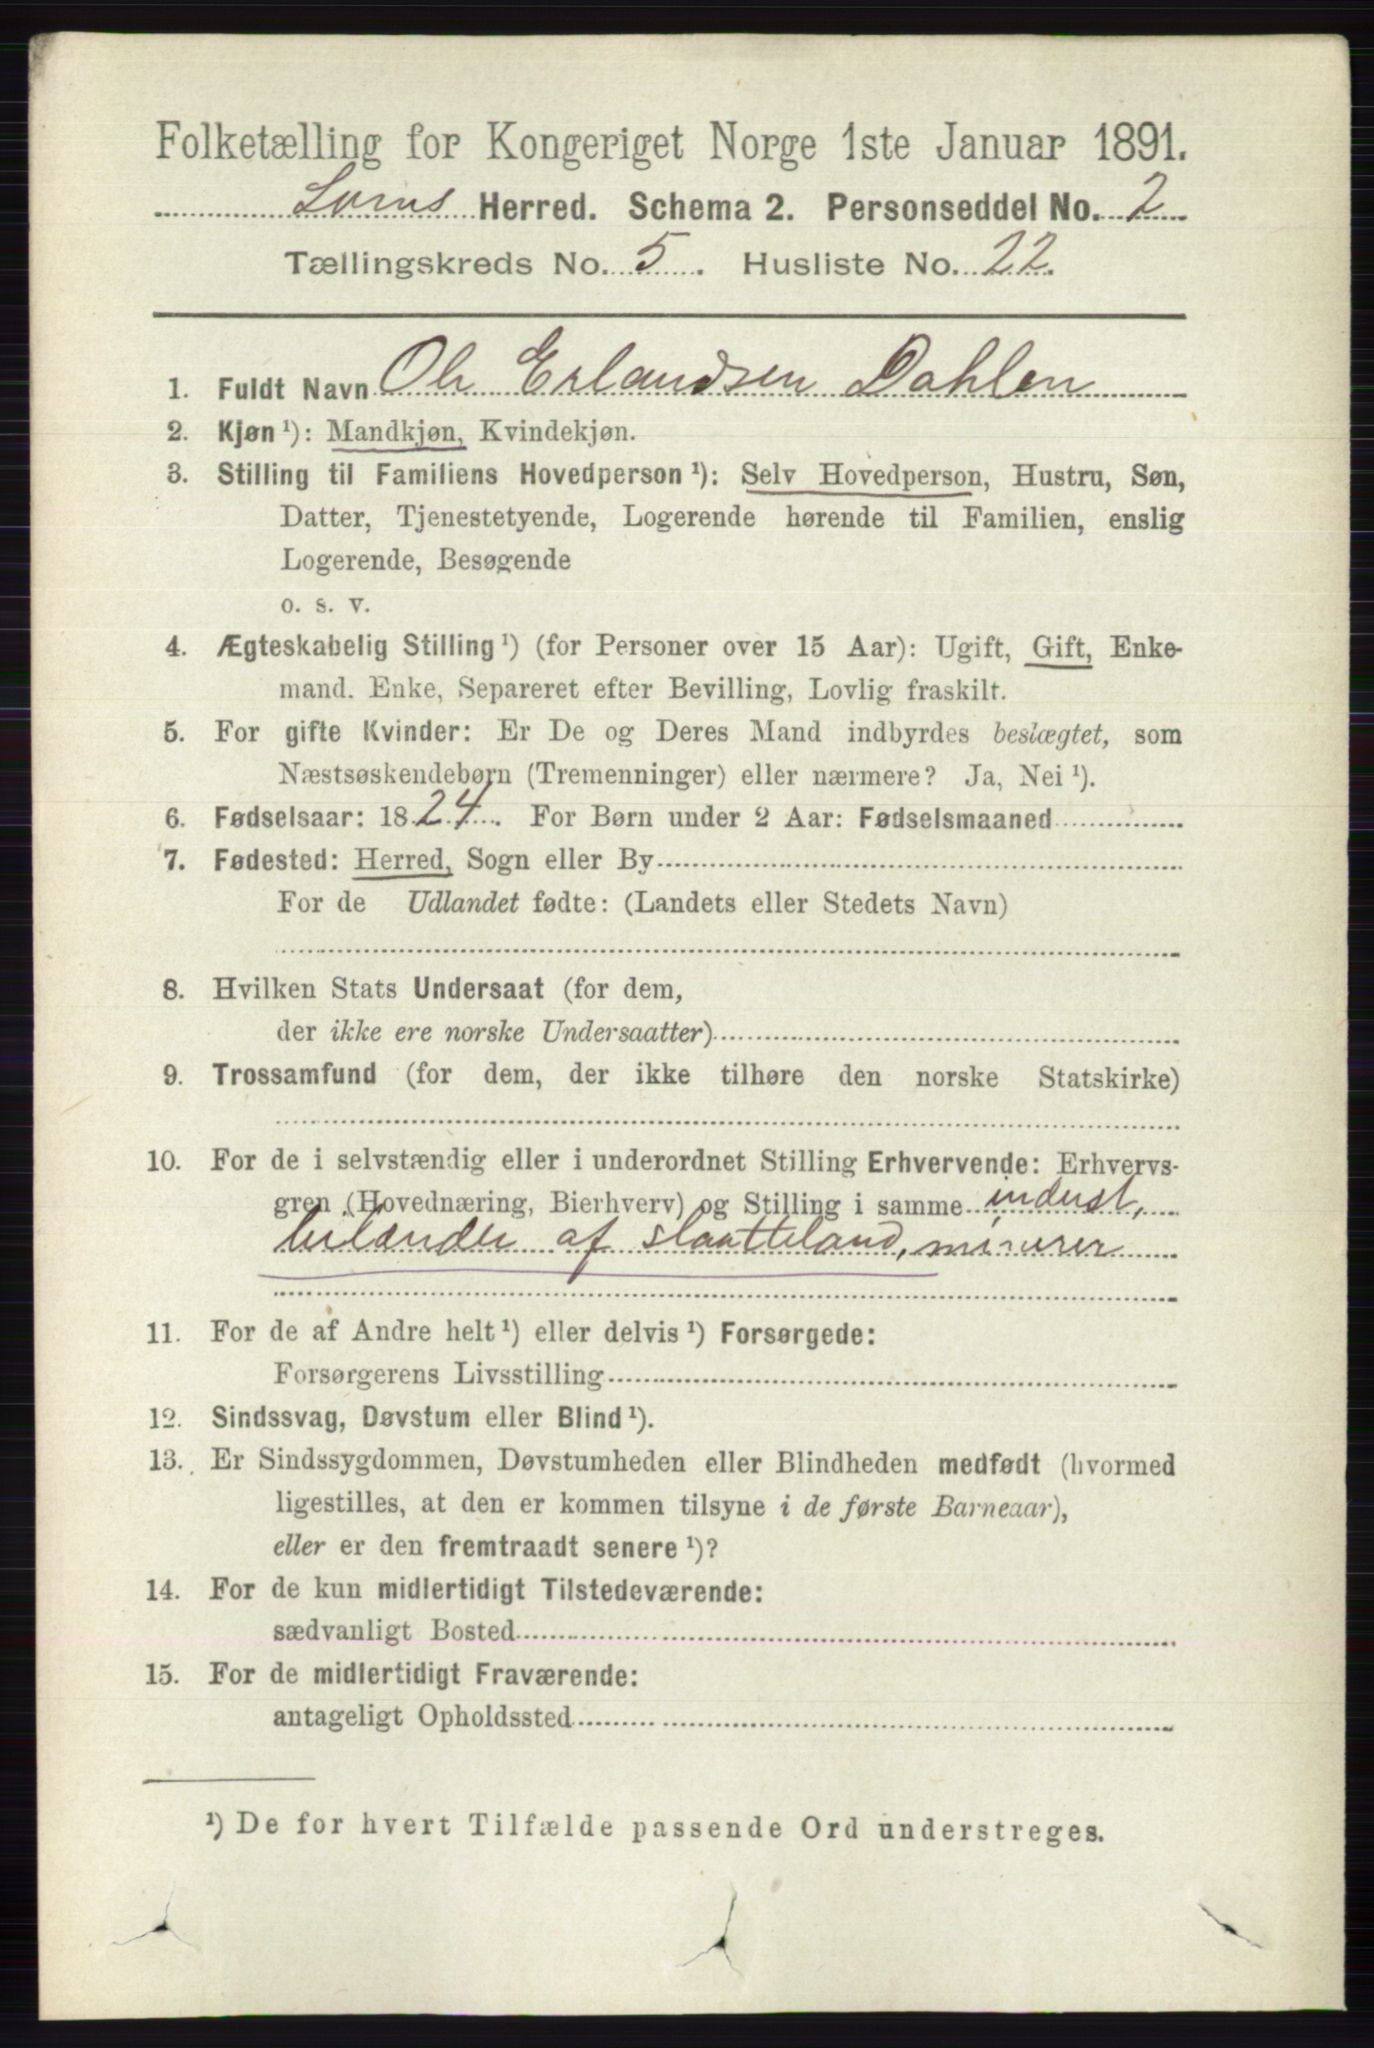 Folketælling for Kongeriget Norge 1ste Januar 1891.
Loms Herred. Schema 2. Personseddel No. 2
Tællingskreds No. 5. Husliste No. 22.
1. Fuldt Navn Ole Erlandsen Dahlen
2. Kjøn ¹): Mandkjøn, Kvindekjøn.
3. Stilling til Familiens Hovedperson ¹): Selv Hovedperson, Hustru, Søn,
Datter, Tjenestetyende, Logerende hørende til Familien, enslig
Logerende, Besøgende
o. s. v.
4. Ægteskabelig Stilling ¹) (for Personer over 15 Aar): Ugift, Gift, Enke-
mand. Enke, Separeret efter Bevilling, Lovlig fraskilt.
5. For gifte Kvinder: Er De og Deres Mand indbyrdes beslægtet, som
Næstsøskendebørn (Tremenninger) eller nærmere? Ja, Nei ¹).
6. Fødselsaar: 1824. For Børn under 2 Aar: Fødselsmaaned
7. Fødested: Herred, Sogn eller By
For de Udlandet fødte: (Landets eller Stedets Navn)
8. Hvilken Stats Undersaat (for dem,
der ikke ere norske Undersaatter)
9. Trossamfund (for dem, der ikke tilhøre den norske Statskirke)
10. For de i selvstændig eller i underordnet Stilling Erhvervende: Erhvervs-
gren (Hovednæring, Bierhverv) og Stilling i samme indust,
lulænder af slaatteland, minerer
11. For de af Andre helt ¹) eller delvis ¹) Forsørgede:
Forsørgerens Livsstilling
12. Sindssvag, Døvstum eller Blind ¹).
13. Er Sindssygdommen, Døvstumheden eller Blindheden medfødt (hvormed
ligestilles, at den er kommen tilsyne i de første Barneaar),
eller er den fremtraadt senere ¹)?
14. For de kun midlertidigt Tilstedeværende:
sædvanligt Bosted
15. For de midlertidigt Fraværende:
antageligt Opholdssted
¹) De for hvert Tilfælde passende Ord understreges.